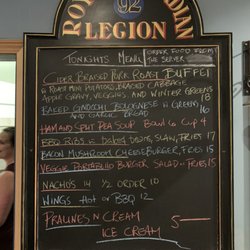 ROY
DIAN
92
LEGION
TONIGHTS MENU
ORDER FOOD FROM
THE SERVER
CIDER BRAISED PORK ROAST BUFFET
ROAST MINI POTATOES, BRAISED CABBAGE
APPLE GRAVY, VEGGIES, AND WINTER GREENS
18
BAKED GNOCCHI BOLOGNESE W GREENS
AND GARLIC BREAD 16
HAM AND SPLIT PEA SOUP Bowl 6 CUP 4
BBQ RIBS W BAKED BEANS, SLAW, FRIES 17
BACON MUSHROOM CHEESE BURGER, FRIES 15
VEGGIE PORTABELLO BURGER SALAD OR FRIES 15
NACHO'S 14 1/2 ORDER 10
WINGS HOT OR BBQ 12
PRALINES N CREAM
ICE CREAM 5